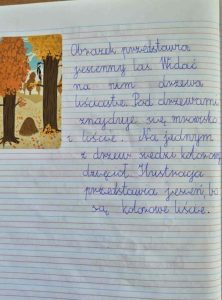 Obrazek przedstawia
jesienny las. Widać
na nim drzewa
liściaste. Pod drzewami
znajduje się mrowisko
i liście. Na jednym
z drzew siedzi kolorowy
dzięcioł. Ilustracja
przedstawia jesień, bo
są kolorowe liście.